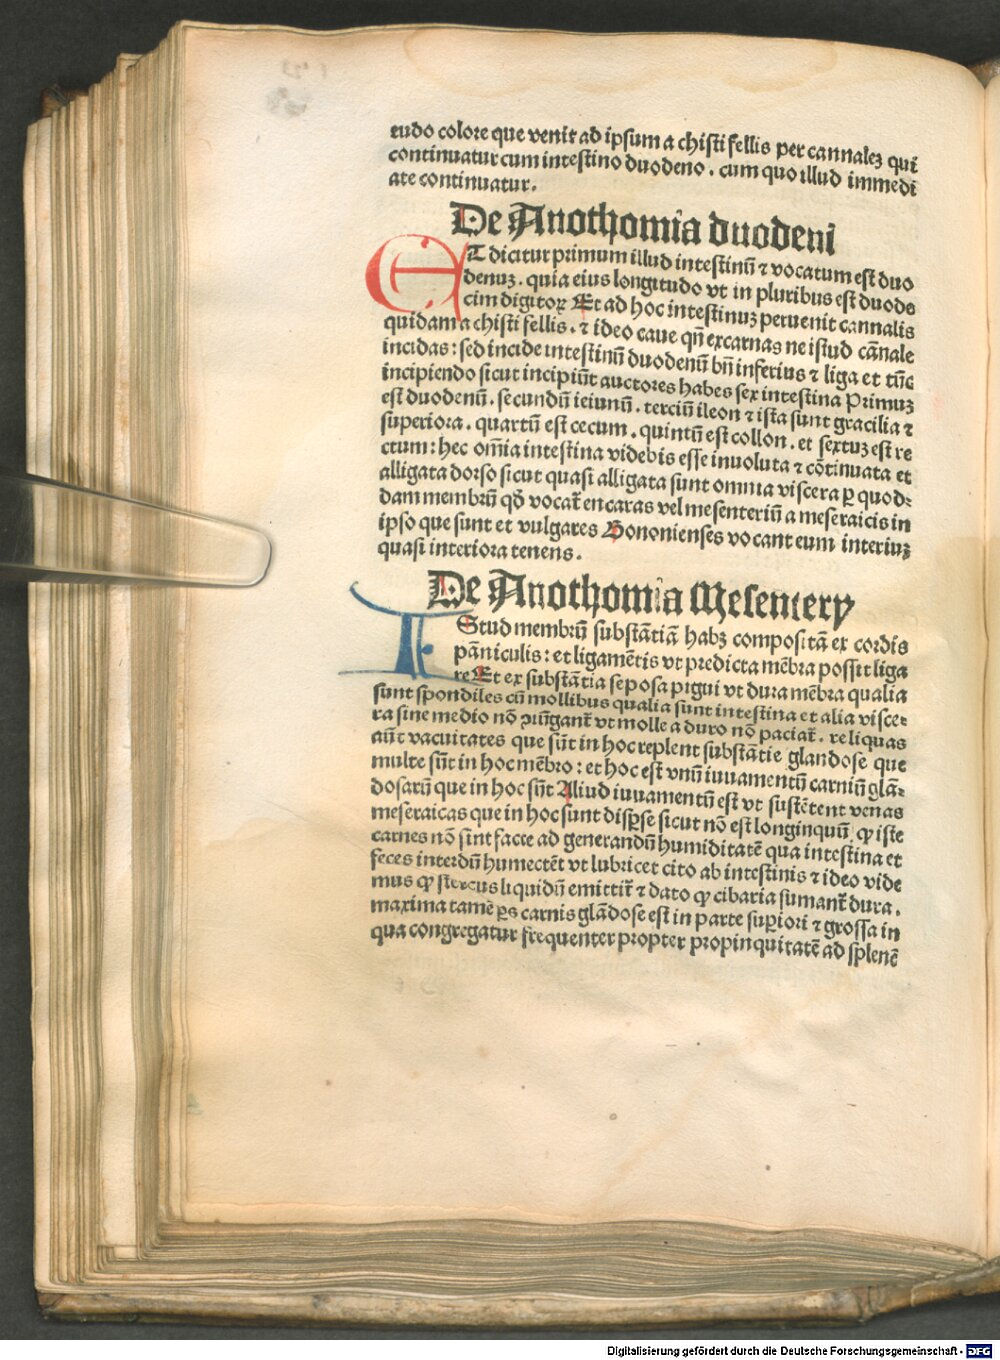 tudo colore que venit ad ipsum a chisti fellis per cannalez qui
continuatur cum intestino duodeno . cum quo illud immedi
ate continuatur.
De Anothomia duodeni
ET dicitur primum illud intestinū ⁊ vocatum est duo
denuz . quia eius longitudo vt in pluribus est duode
cim digitoꝝ Et ad hoc intestinuz peruenit cannalis
quidam a chisti fellis . ⁊ ideo caue qn̄ excarnas ne istud cānale
incidas : sed incide intestinū duodenū bn̄ inferius ⁊ liga et tūc
incipiendo sicut incipiūt auctores habes sex intestina Primuz
est duodenū . secundū ieiunū . terciū ileon ⁊ ista sunt gracilia ⁊
superiora . quartū est cecum . quintū est collon . et sextuz est re
ctum : hec om̄ia intestina videbis esse inuoluta ⁊ cōtinuata et
alligata dorso sicut quasi alligata sunt omnia viscera ꝑ quod⸗
dam membrū qd̄ vocat̄ encaras vel mesenteriū a meseraicis in
ipso que sunt et vulgares Bononienses vocant eum interiuz
quasi interiora tenens .
De Anothomia Mesentery
IStud membrū substātiā habz compositā ex cordis
pāniculis : et ligamētis vt predicta mēbra possit liga
re Et ex substātia seposa pigui vt dura mēbra qualia
sunt spondiles cū mollibus qualia sunt intestina et alia visce⸗
ra sine medio nō ꝯiūgant̄ vt molle a duro nō paciat̄ . reliquas
aūt vacuitates que sūt in hoc replent substātie glandose que
multe sūt in hoc mēbro : et hoc est vnū iuuamentū carniū glā⸗
dosarū que in hoc sūt Aliud iuuamentū est vt sustētent venas
meseraicas que in hoc sunt disꝑse sicut nō est longinquū ꝙ iste
carnes nō sint facte ad generandū humiditatē qua intestina et
feces interdū humectēt vt lubricet cito ab intestinis ⁊ ideo vide
mus ꝙ stercus liquidū emittit̄ ⁊ dato ꝙ cibaria sumant̄ dura .
maxima tamē ꝑs carnis glādose est in parte suꝑiori ⁊ grossa in
qua congregatur frequenter propter propinquitatē ad splenē
Digitalisierung gefördert durch die Deutsche Forschungsgemeinschaft - DFG